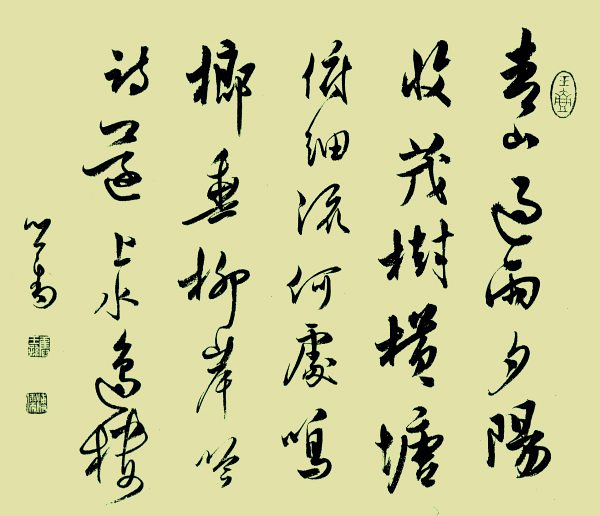 青山過雨夕陽
收茂樹橫塘
俯細流何處鳴
榔垂柳岸吟
詩還上水邊樓
心畬